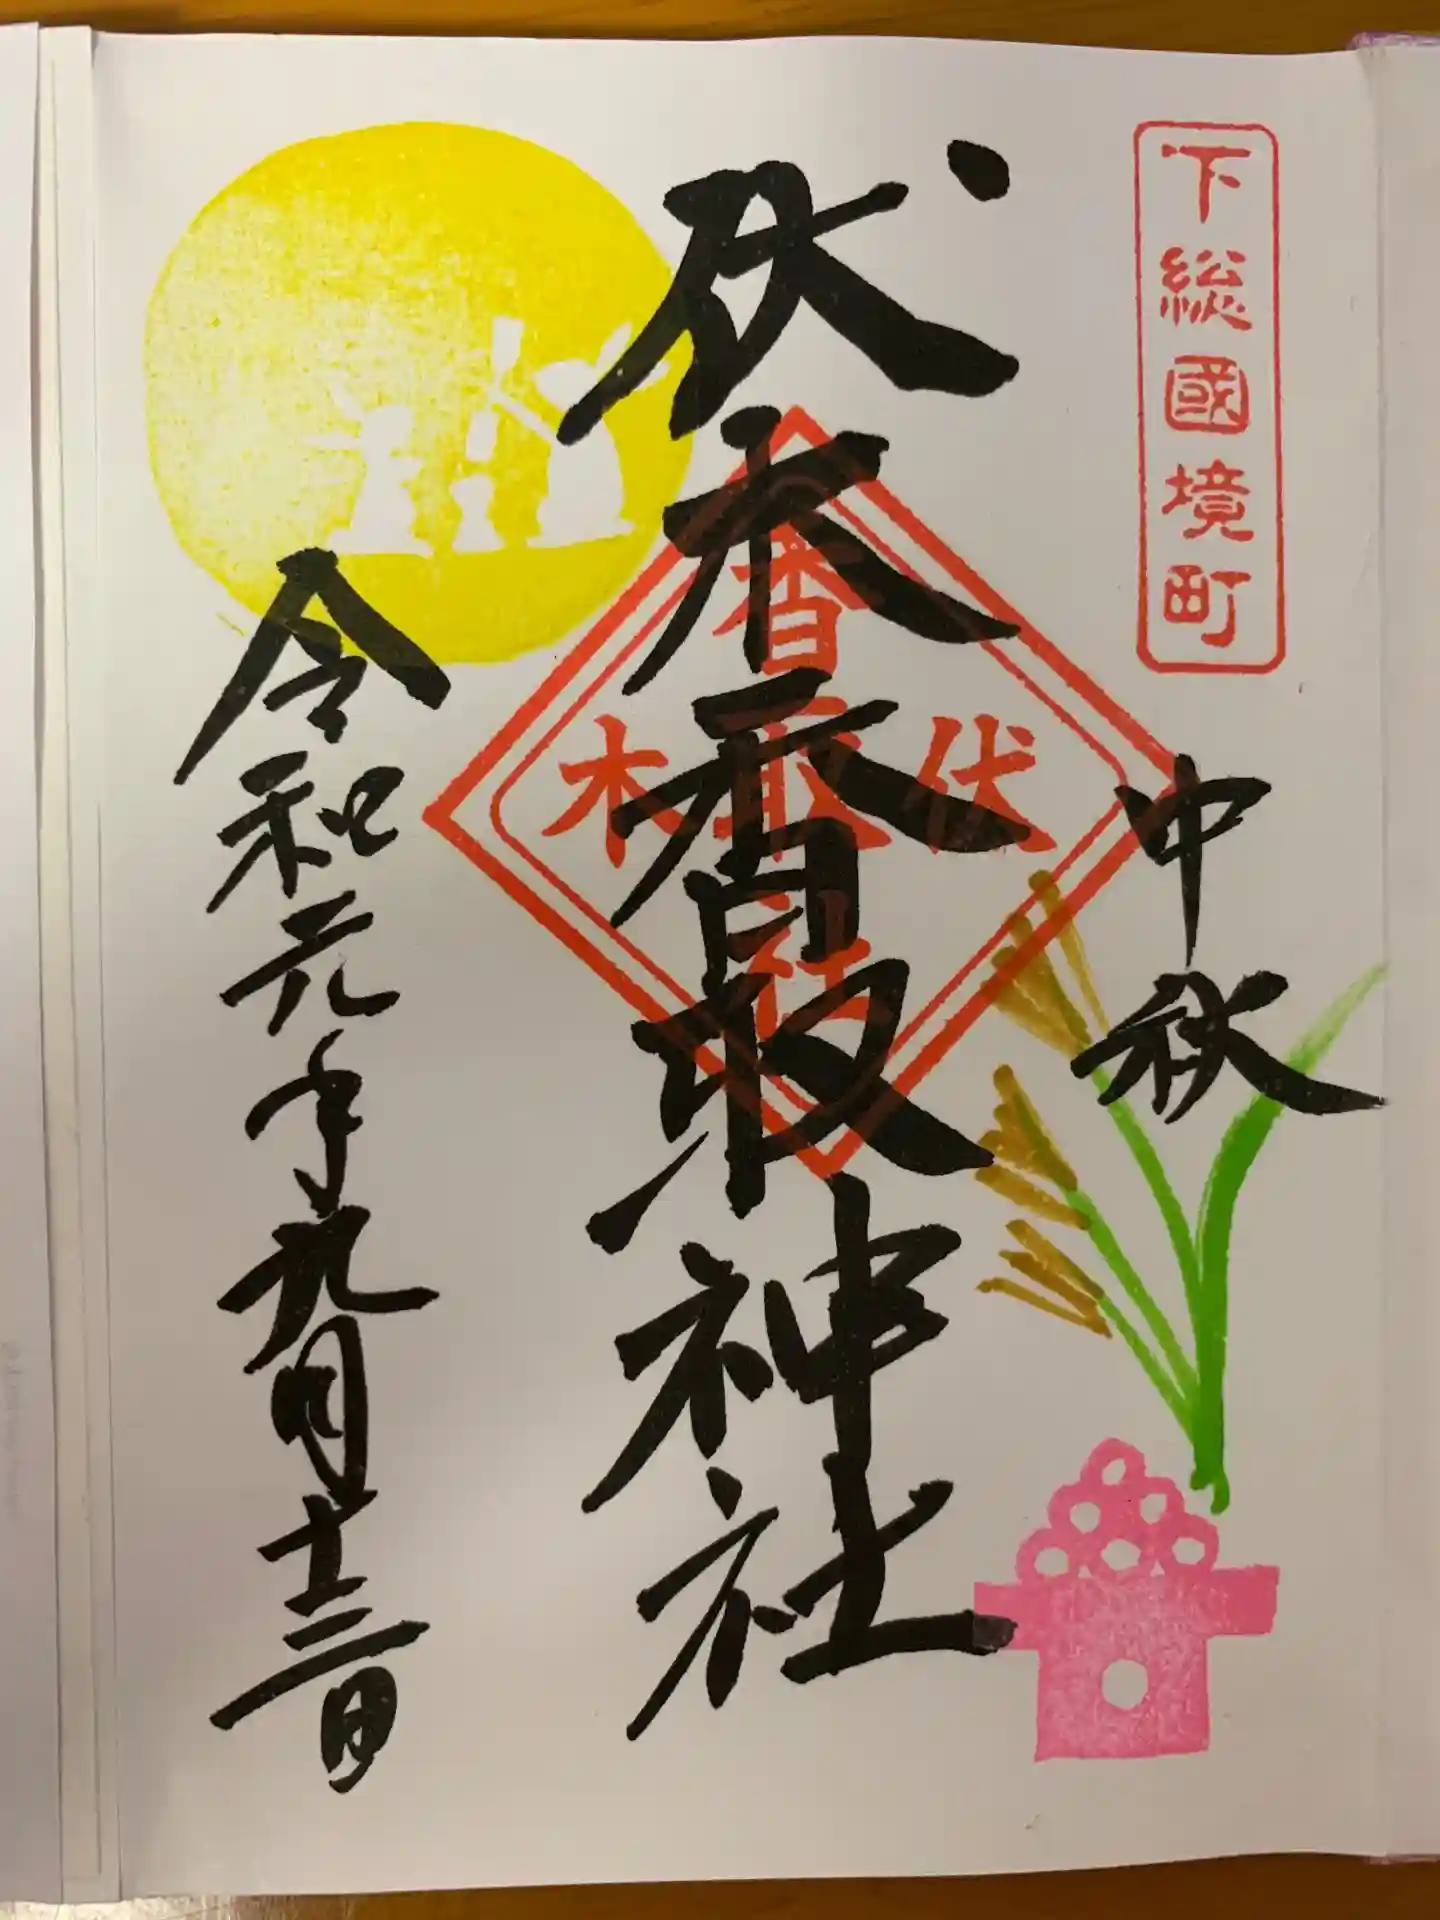 下総國境町
中秋
伏木香取神社
香
伏取木
社
令和元年九月十三日